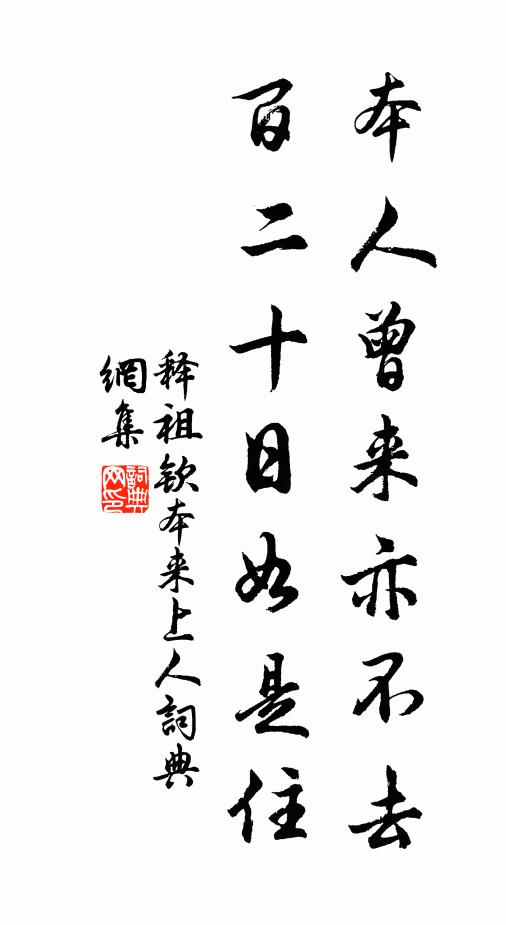 本人曾来亦不去
百二十日如是住
释祖钦本来上人詞典
網集
詞典網印